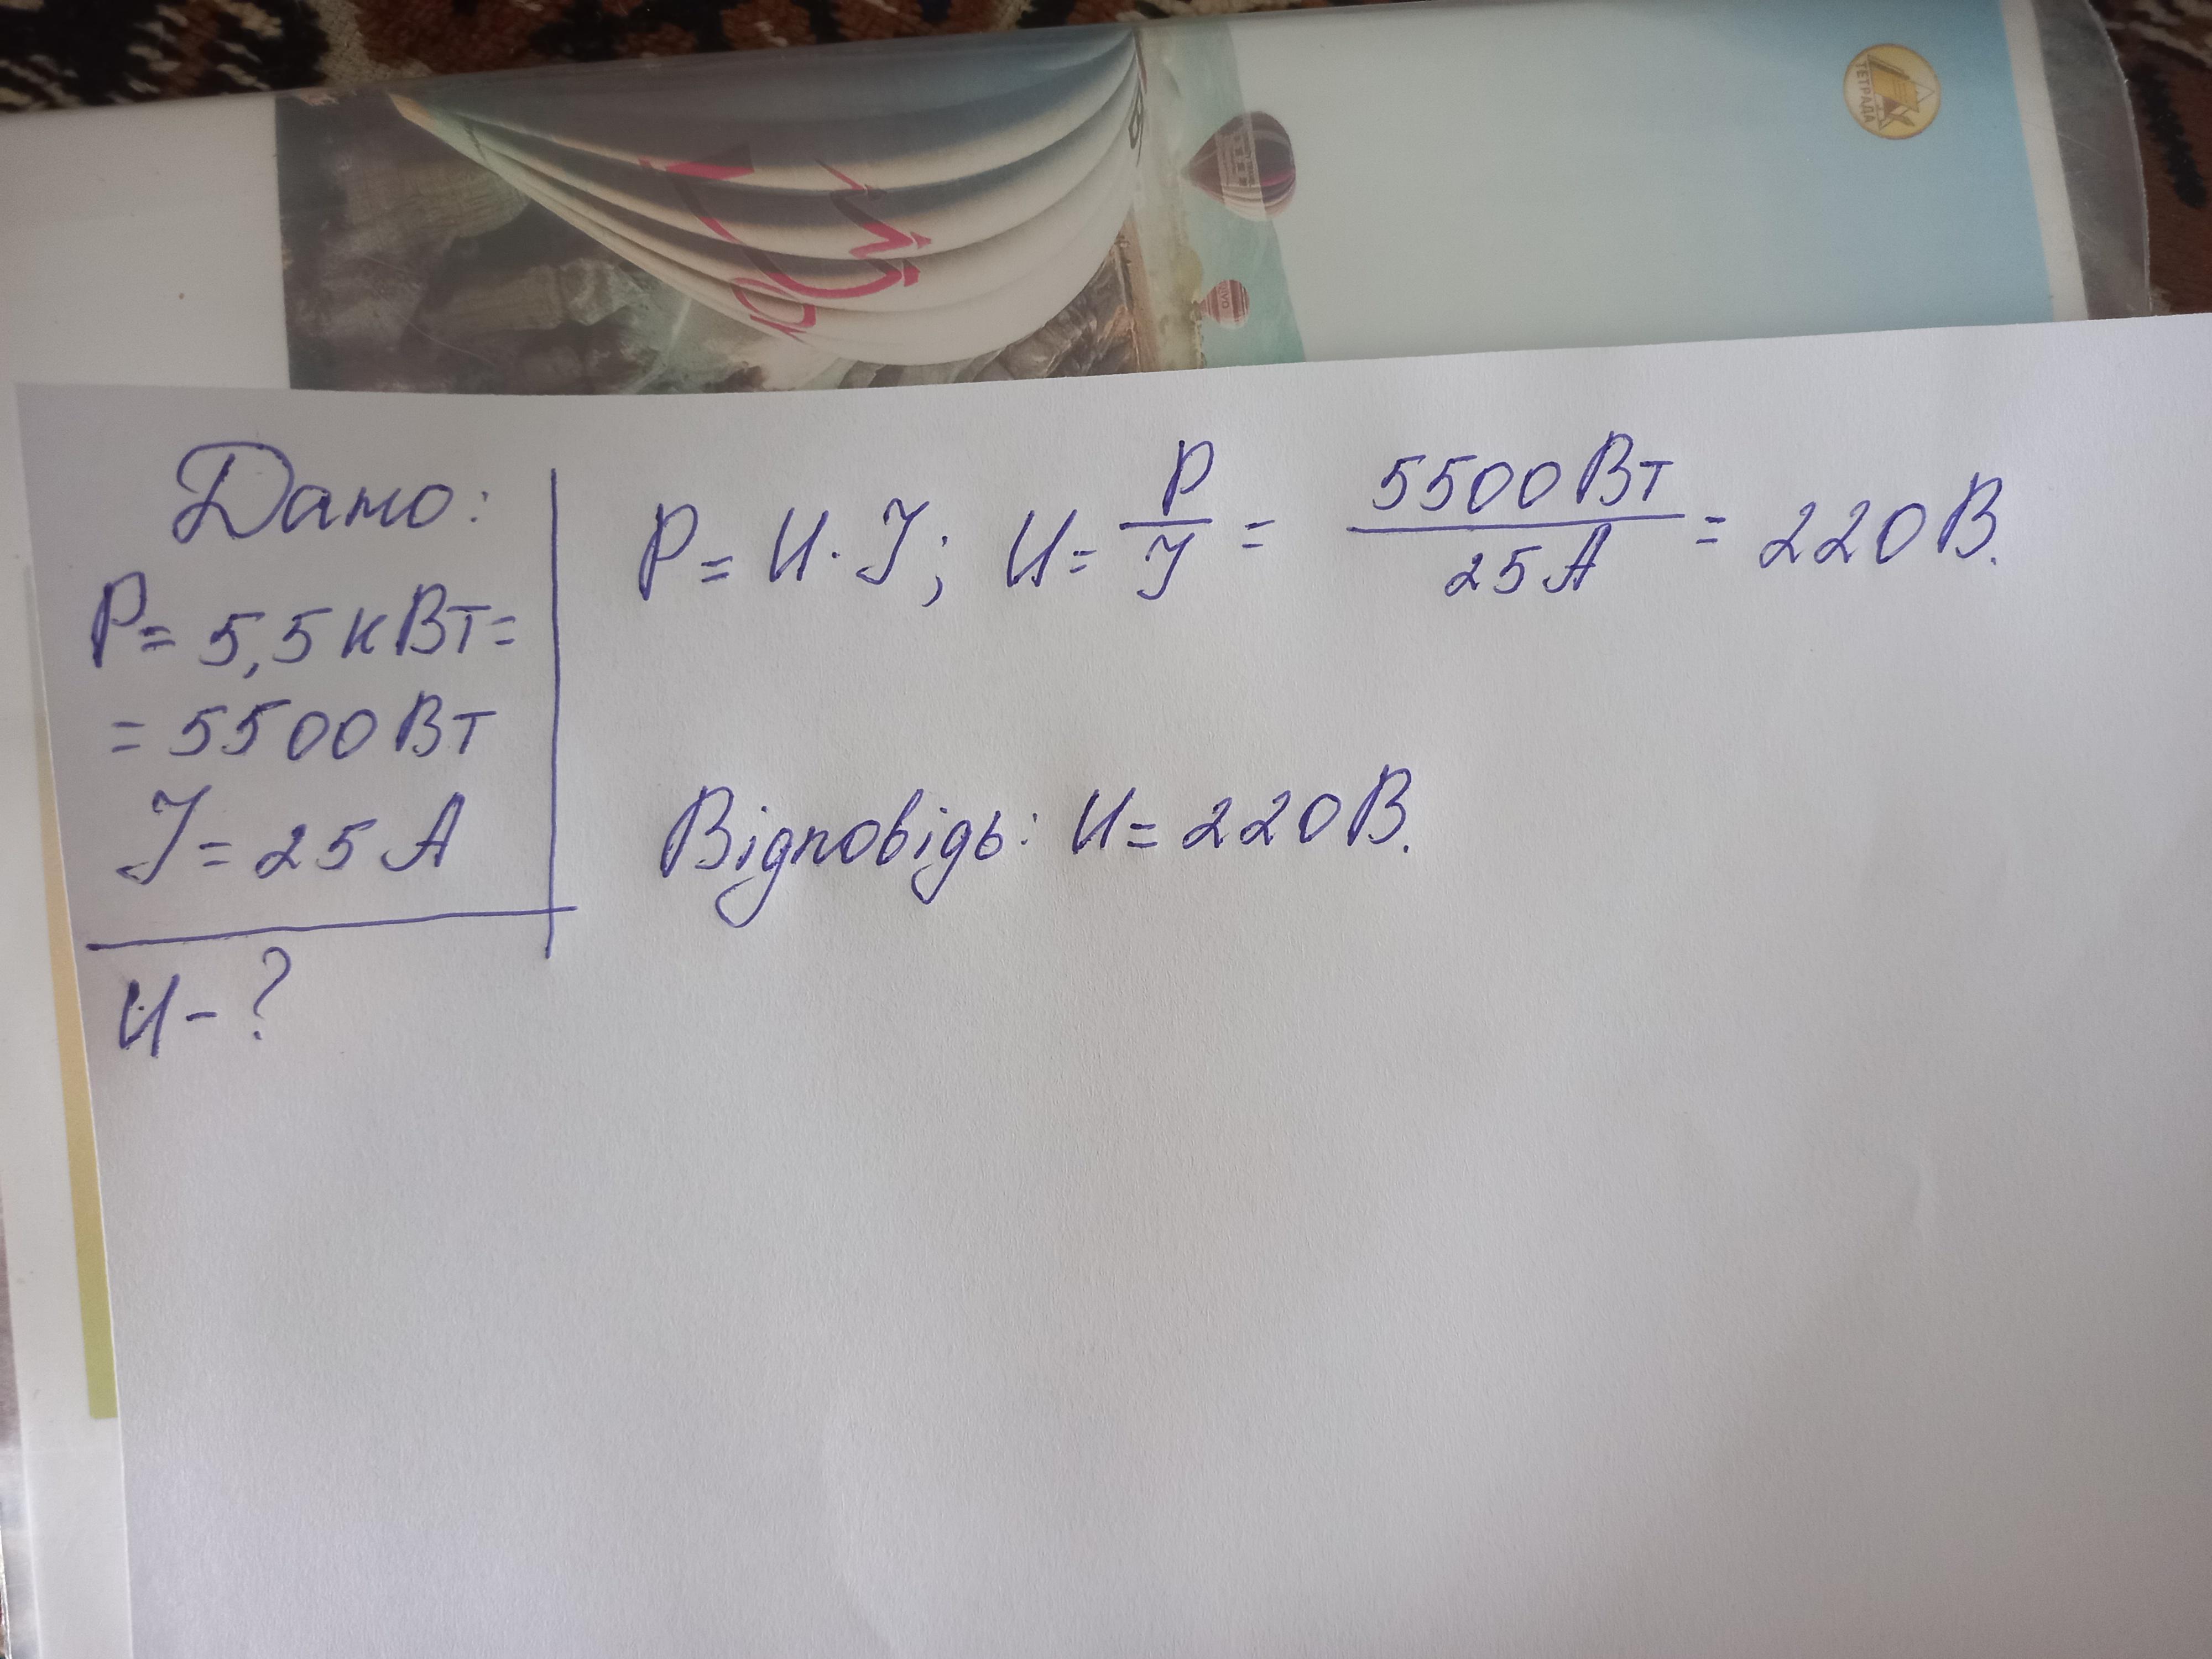 ТЕТРАДА
Дано:
P = 5,5 кВт =
= 5500 Вт
I = 25 А
U - ?
P = U · I; U = P/I = 5500 Вт/25 А = 220 В.
Відповідь: U = 220 В.